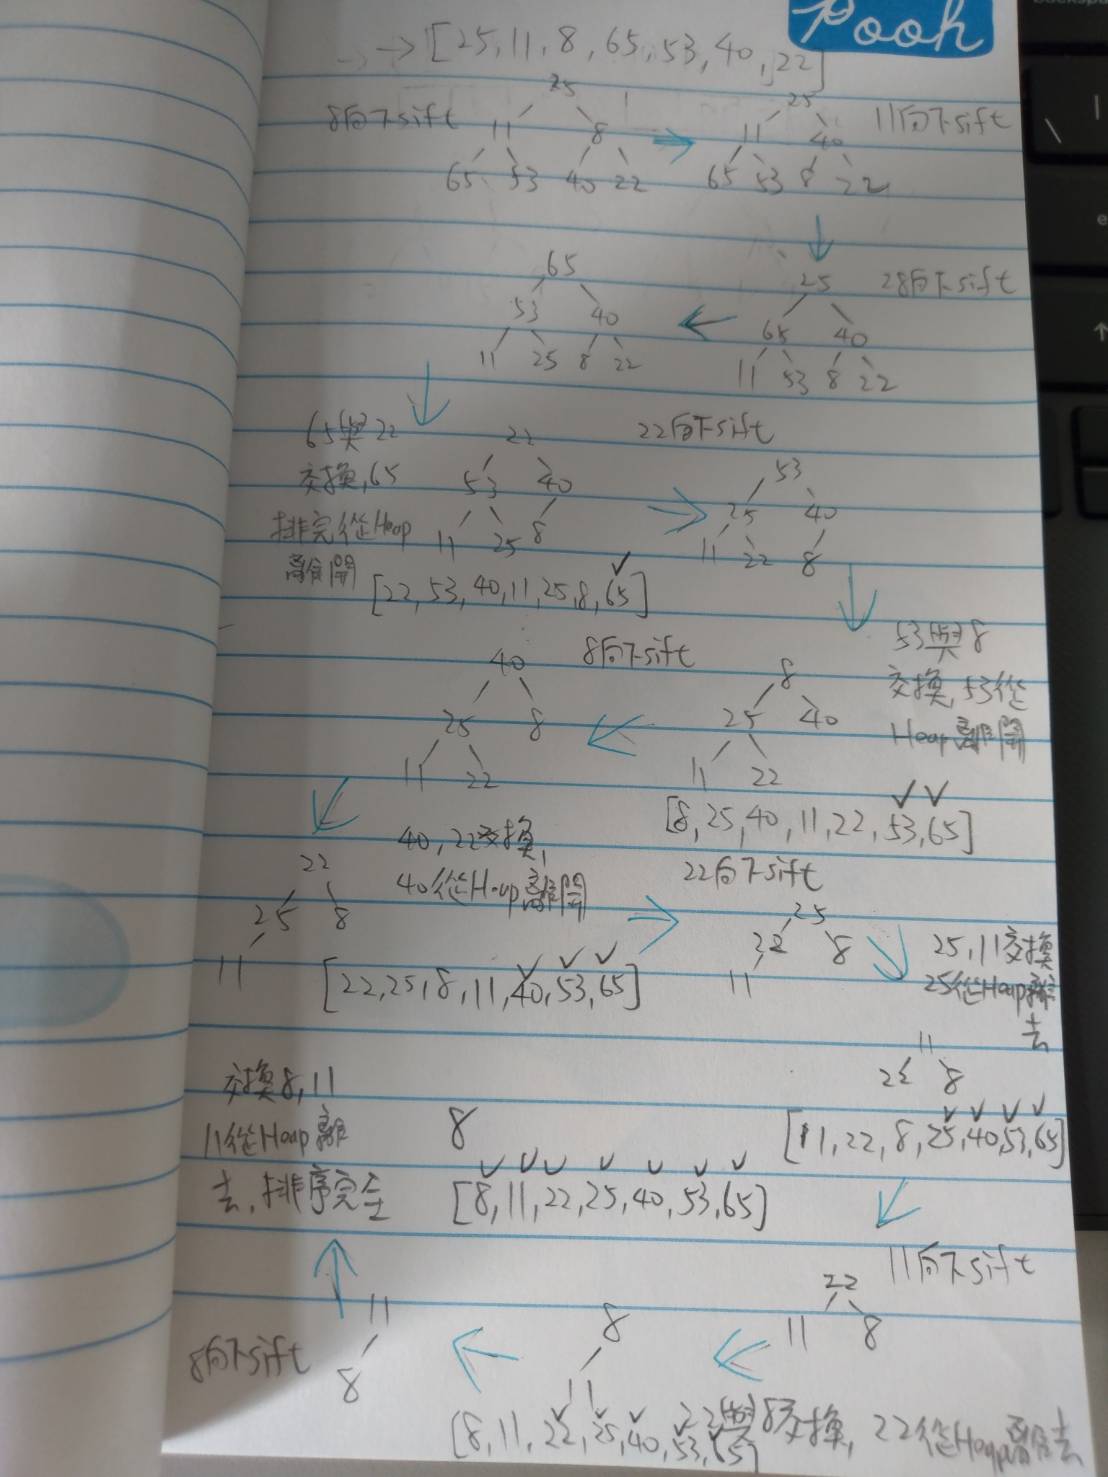 Pooh
→ → [25, 11, 8, 65, 53, 40, 22]
8向下sift
25
11 8
65 53 40 22
25
11 40
65 53 8 22
11向下sift
25
65 40
11 53 8 22
28向下sift
65
53 40
11 25 8 22
65與22
交換,65
排完從Heap
離開
22
53 40
11 25 8
[22, 53, 40, 11, 25, 8, 65]
22向下sift
53
25 40
11 22 8
53與8
交換,53從
Heap離開
8
25 40
11 22
[8, 25, 40, 11, 22, 53, 65]
8向下sift
40
25 8
11 22
40, 22交換,
40從Heap離開
22
25 8
11
[22, 25, 8, 11, 40, 53, 65]
22向下sift
25
22 8
11
25, 11交換
25從Heap離
去
11
22 8
[11, 22, 8, 25, 40, 53, 65]
11向下sift
22
11 8
22與8交換, 22從Heap離去
8
11
[8, 11, 22, 25, 40, 53, 65]
8向下sift
11
8
交換8, 11
11從Heap離
去,排序完全
8
[8, 11, 22, 25, 40, 53, 65]